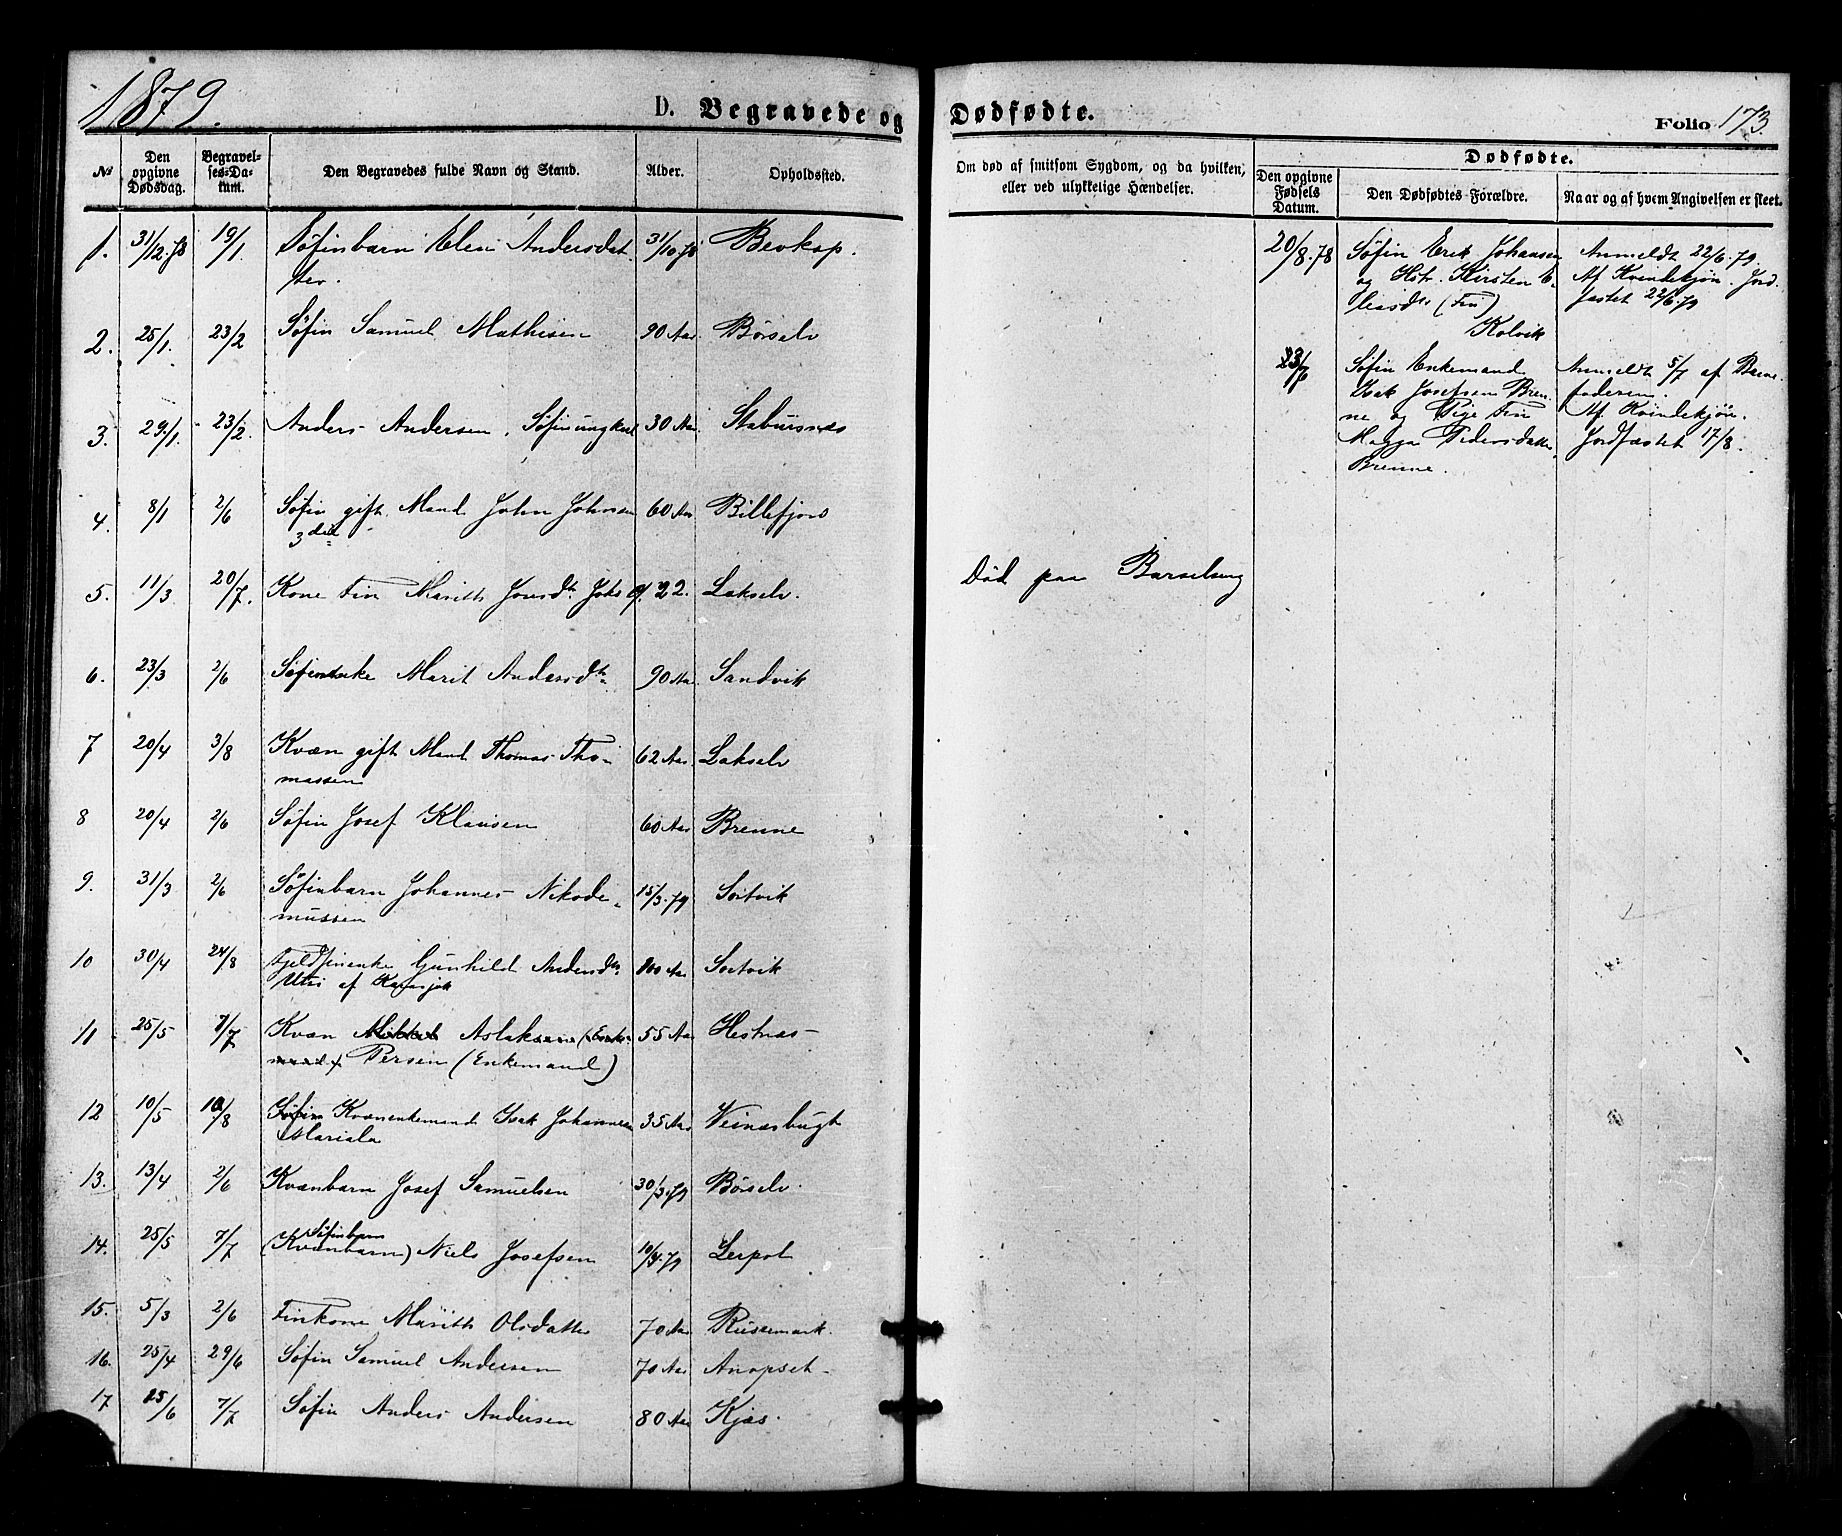 1879.
D. Begravede og
Dødfødte.
Folio 173
№
Den opgivne Dødsdag.
Begravel-ses-Da-tum.
Den Begravedes fulde Navn og Stand.
Alder.
Opholdssted.
Om død af smitsom Sygdom, og da hvilken,
eller ved ulykkelige Hændelser.
Dødfødte.
Den opgivne Fødsels Datum.
Den Dødfødtes Forældre.
Naar og af hvem Angivelsen er skeet.
1. 31/12.78 19/1 Søfinbarn Elen Andersdat- 31/10.78 Bevkop.
ter.
2. 25/1. 23/2 Søfin Samuel Mathisen 90 Aar Børselv
3. 29/1. 23/2. Anders Andersen, Søfinungkarl 30 Aar. Stabursnæs
4. 8/1 2/6 Søfin gift Mand John Johnsen 60 Aar Billefjord
3die
5. 11/3 20/7. Kone Fin Marith Jonsdtr 22. Lakselv.
Død paa Barselseng
6. 23/3 2/6 Søfinenke Marit Andersdtr 90 Aar. Sandvik
7 20/4 3/8 Kvæn gift Mand Thomas Tho- 62 Aar Lakselv
massen
8 20/4 2/6 Søfin Josef Klausen 60 Aar Brenne
9. 31/3 2/6 Søfinbarn Johannes Nikode- 15/3.79 Sortvik
mussen
10 30/4 24/8 Fjeldfinenke Gunhild Andersdtr Aar Sortvik
Utsi af Karasjok
11 25/5 7/7 Kvæn Mikkel Aslaksen (Enke- 55 Aar Hestnæs
mand) Persen (Enkemand)
12 10/5 10/8 Søfin Kvænenkemand Isak Johannesen 35 Aar Veinæsbugt
Mariala
13. 13/4 2/6 Kvænbarn Josef Samuelsen 30/3.79 Børselv.
14. 25/5 7/7 Søfinbarn
(Kvænbarn) Niels Josefsen 10/4.79 Lerpol
15. 5/3 2/6 Finkone Marith Olsdatter 70 Aar Russemark.
16. 25/4 29/6 Søfin Samuel Andersen 70 Aar Anopset
17 25/6 7/7 Søfin Anders Andersen 80 Aar Kjæs.
20/8.78 Søfin Erik Johansen Anmeldt 22/6.79.
og Hstr. Kirsten E- Af Kvindekjøn. Jord-
liasdtr (Fin) fæstet 22/6.79
Kolvik
23/6 Søfin Enkemand Anmeldt 5/7 af Barne-
Isak Josefsen Bren- faderen.
ne og Pige Fin Af Kvindekjøn.
Magga Pedersdatter Jordfæstet 17/8.
Brenne.